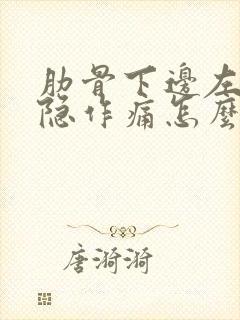 肋骨下邊左
隐作痛怎麼
唐漪漪